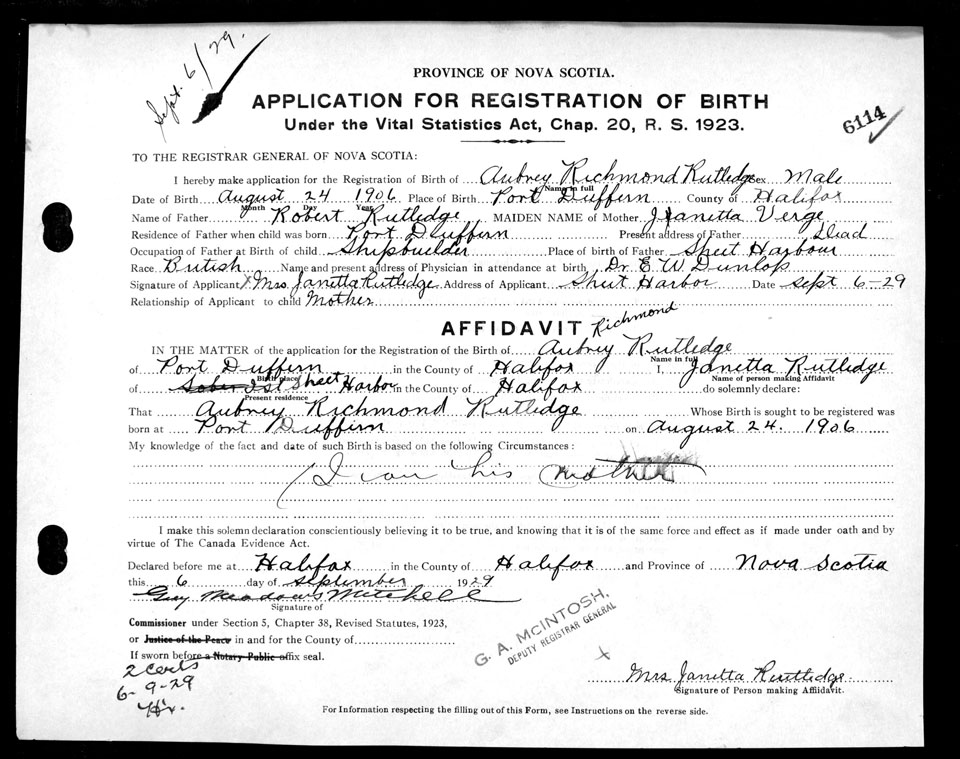 Sept. 6/29.
PROVINCE OF NOVA SCOTIA.
APPLICATION FOR REGISTRATION OF BIRTH
Under the Vital Statistics Act, Chap. 20, R. S. 1923.
6114
TO THE REGISTRAR GENERAL OF NOVA SCOTIA:
I hereby make application for the Registration of Birth of Aubrey Richmond Rutledge Sex Male
Name in full
Date of Birth August 24 1906 Place of Birth Port Dufferin County of Halifax
Month Day Year
Name of Father Robert Rutledge MAIDEN NAME of Mother Janetta Verge
Residence of Father when child was born Port Dufferin Present address of Father Dead
Occupation of Father at Birth of child Shipbuilder Place of birth of Father Sheet Harbour
Race British Name and present address of Physician in attendance at birth Dr. E. W. Dunlop
Signature of Applicant X Mrs Janetta Rutledge Address of Applicant Sheet Harbor Date Sept 6-29
Relationship of Applicant to child Mother
AFFIDAVIT Richmond
IN THE MATTER of the application for the Registration of the Birth of Aubrey Rutledge
Name in full
of Port Dufferin in the County of Halifax I, Janetta Rutledge
Birth place Name of person making Affidavit
of Sober Isl Sheet Harbor in the County of Halifax do solemnly declare:
Present residence
That Aubrey Richmond Rutledge Whose Birth is sought to be registered was
born at Port Dufferin on August 24. 1906
My knowledge of the fact and date of such Birth is based on the following Circumstances:
I am his mother
I make this solemn declaration conscientiously believing it to be true, and knowing that it is of the same force and effect as if made under oath and by
virtue of The Canada Evidence Act.
Declared before me at Halifax in the County of Halifax and Province of Nova Scotia
this 6 day of September 1929
Guy Meadows Mitchell
Signature of
Commissioner under Section 5, Chapter 38, Revised Statutes, 1923,
or Justice of the Peace in and for the County of
If sworn before a Notary Public affix seal.
G. A. McINTOSH,
DEPUTY REGISTRAR GENERAL
2 Certs
6-9-29
X
Mrs Janetta Rutledge
Signature of Person making Affidavit.
For Information respecting the filling out of this Form, see Instructions on the reverse side.